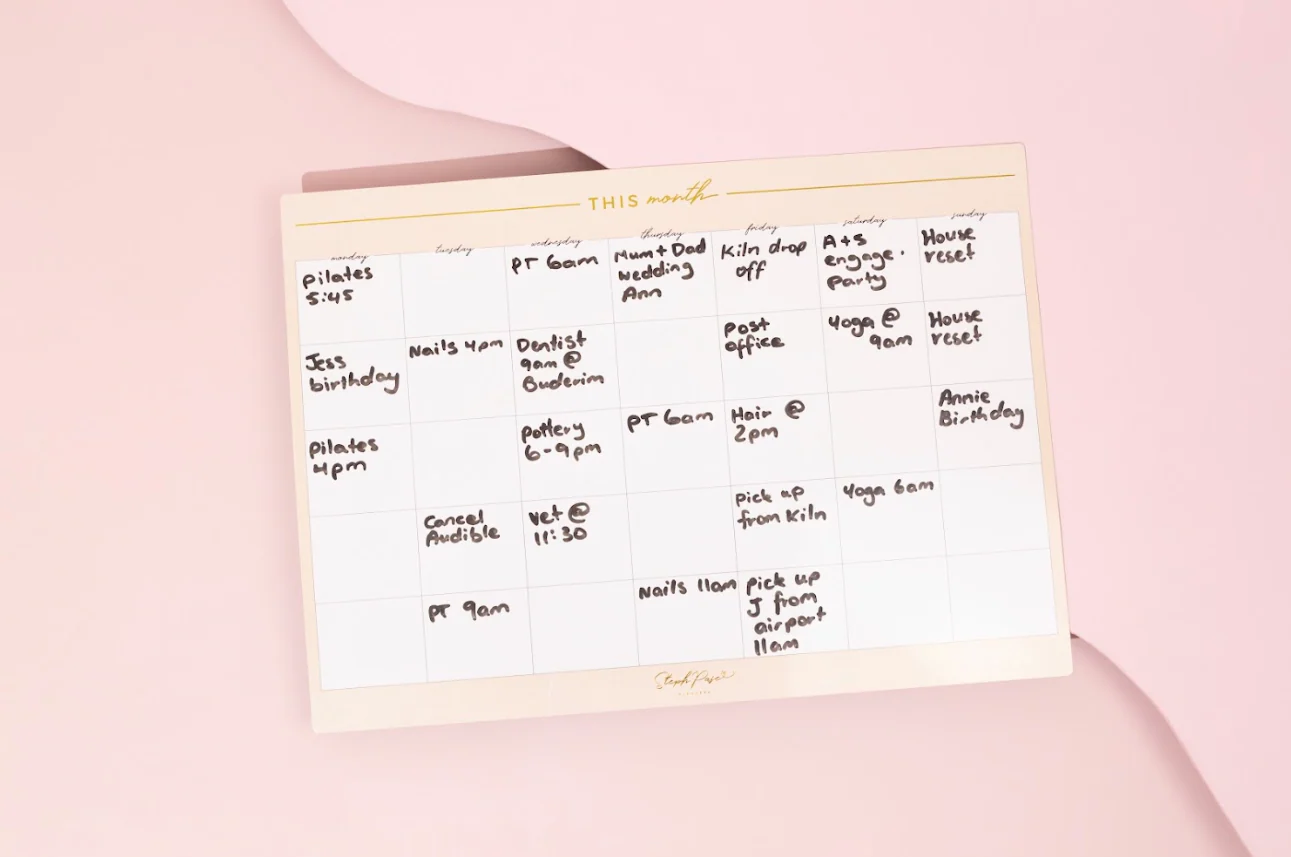 THIS month
monday tuesday wednesday thursday friday saturday sunday
Pilates
5:45
PT 6am
Mum + Dad
wedding
Ann
Kiln drop
off
A + S
engage.
Party
House
reset
Jess
birthday
Nails 4pm
Dentist
9am @
Buderim
Post
office
Yoga @
9am
House
reset
Pilates
4pm
Pottery
6-9pm
PT 6am
Hair @
2pm
Annie
Birthday
Cancel
Audible
Vet @
11:30
Pick up
from Kiln
Yoga 6am
PT 9am
Nails 11am
Pick up
J from
airport
11am
Steph Pase